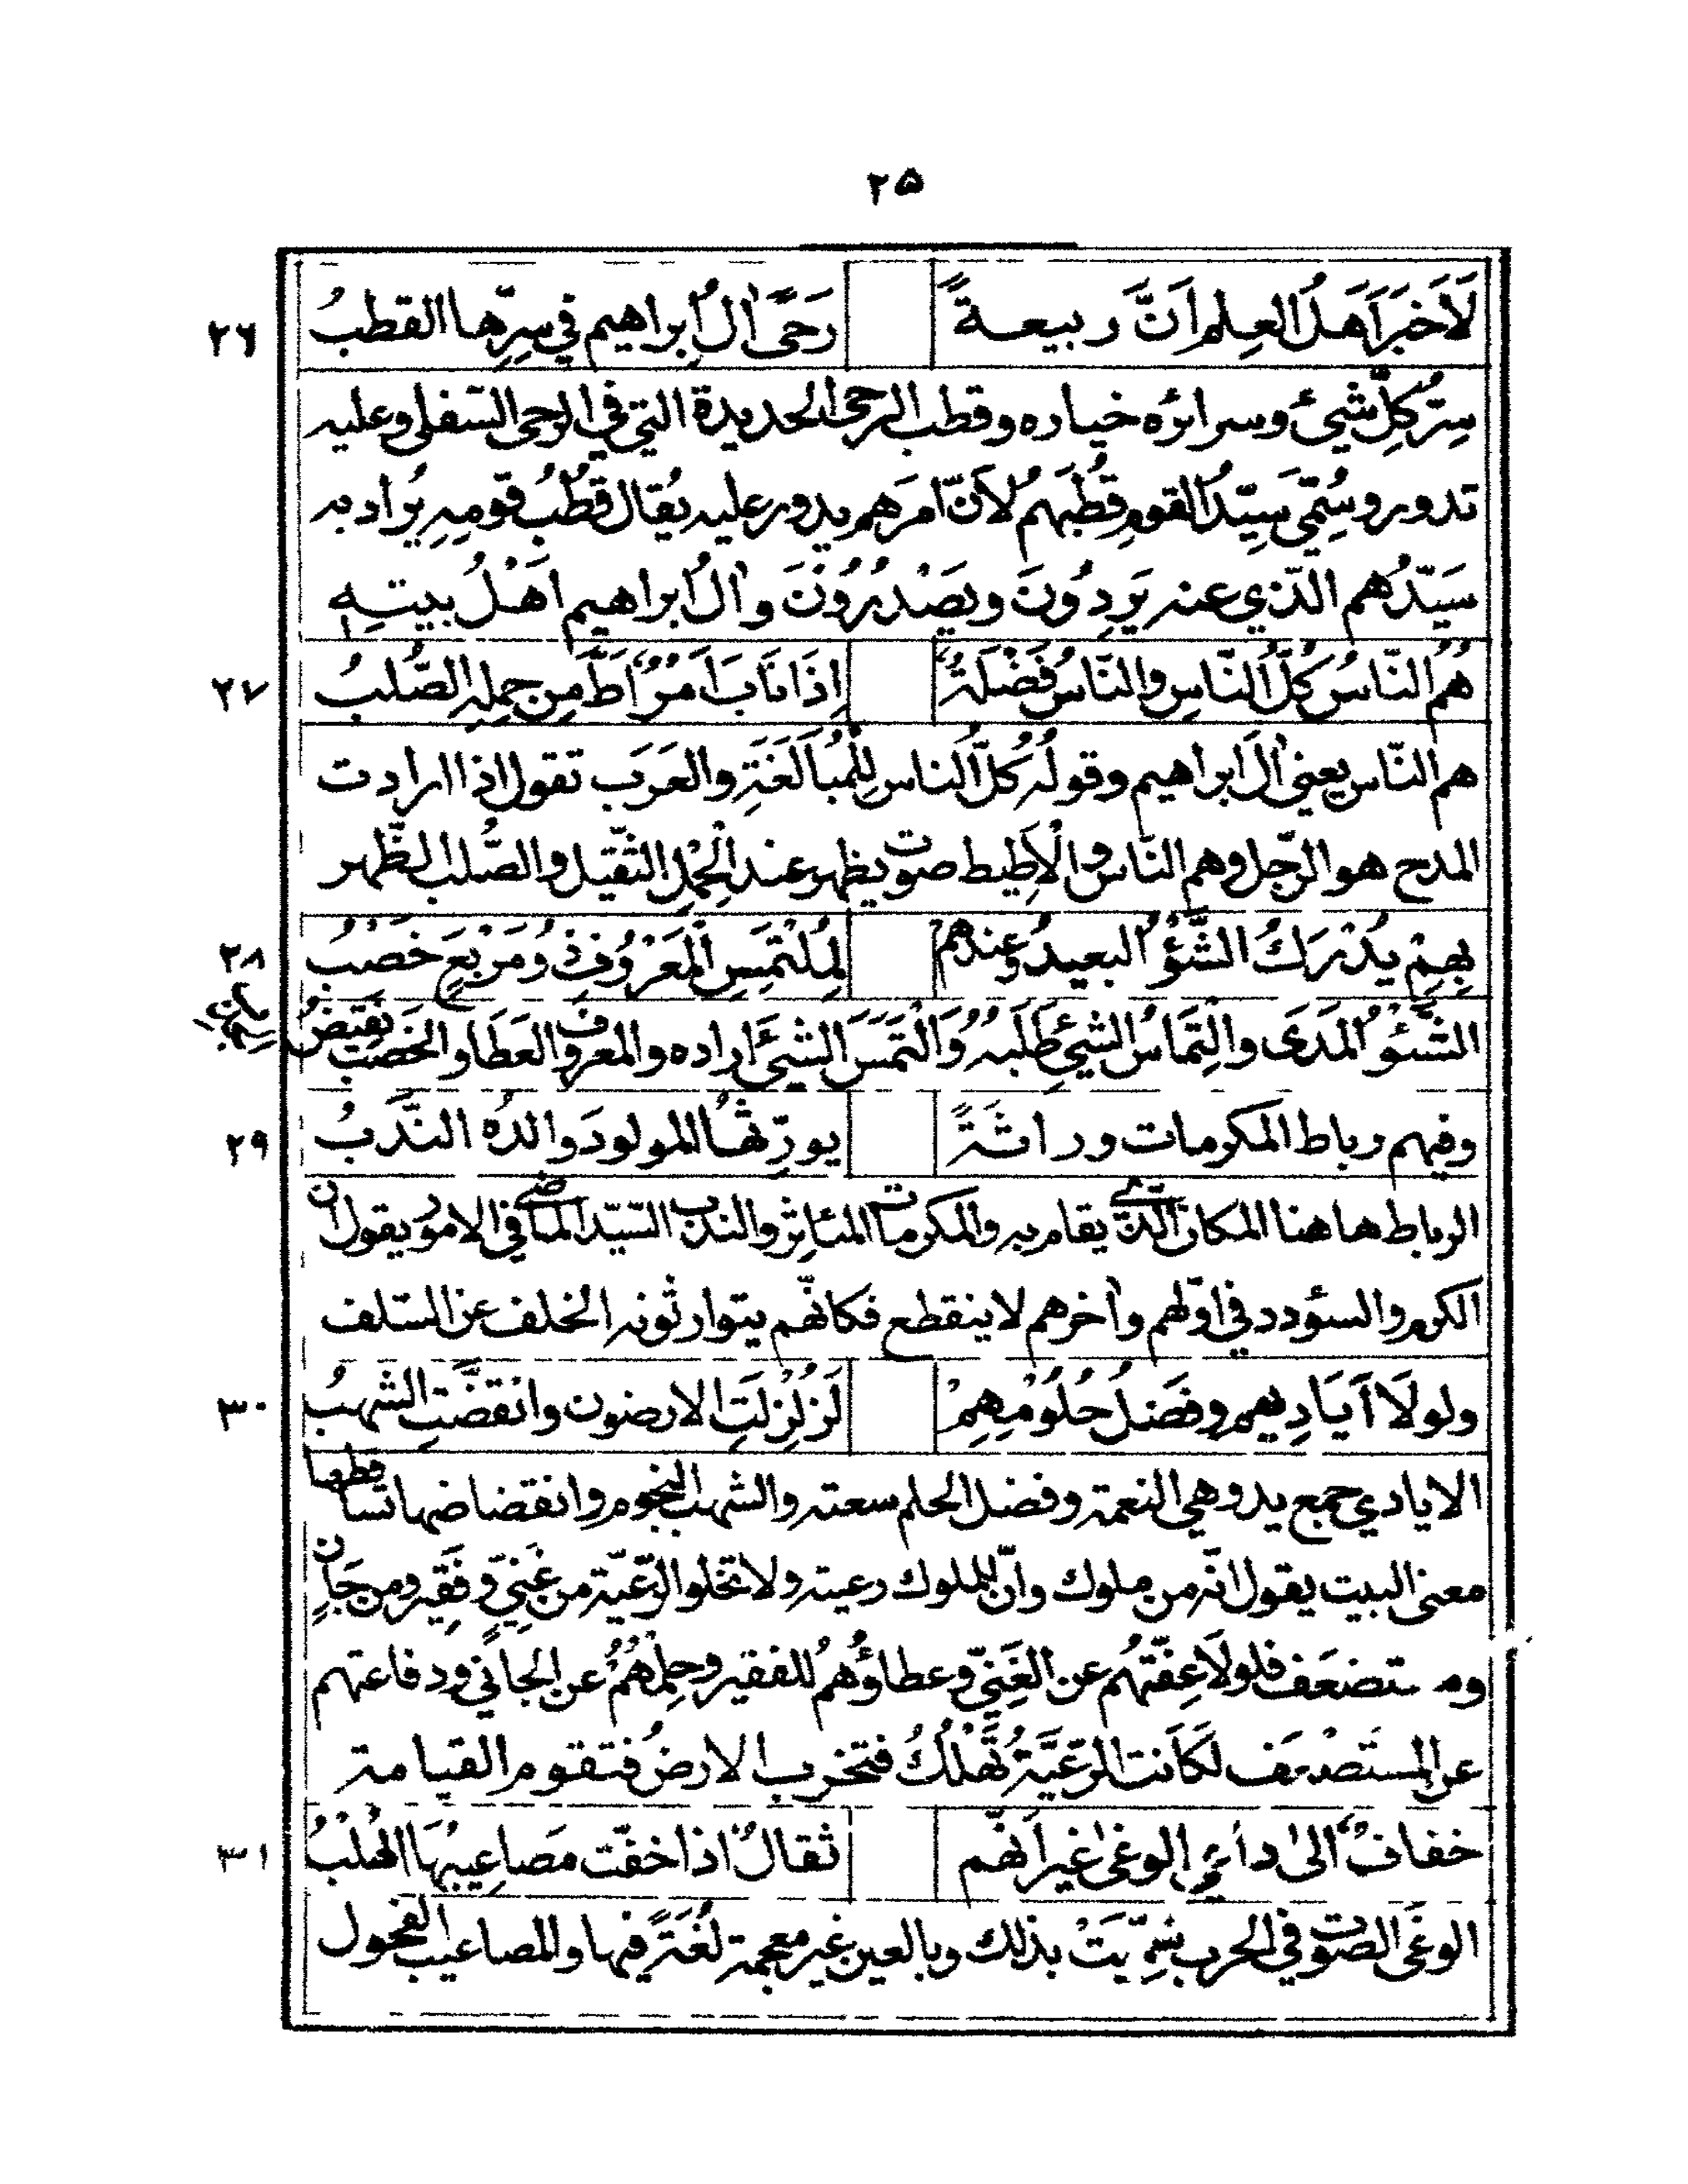 ٢٥
لَاَخبَرَ اَهَلُ العِلمِ اَنَّ ربيعـةً رَحىً اٰلُ ابراهيم في سِرِّها القطبُ ٢٦
سِرُّ كلِّ شيئ وسرائره خياره وقطب الرحى الحديدة التي في الرحى السّفلى وعليه
تدور وسُمّي سيّدُ القومِ قطبَهمُ لاَنّ امرَهم يدور عليه يُقال قطْبُ قومِهِ يُراد به
سَيّدُهم الّذي عنه يَرِدُونَ ويَصْدُرُوْنَ واٰلُ ابراهيم اَهْلُ بيتهِ
هُمُ النّاسُ كلُّ النّاسِ والنّاسُ فَضْلَةٌ اِذَا نَابَ اَمْرٌ اَطَّ مِن حِملِهِ الصُّلبُ ٢٧
هم النّاس يعني اٰلَ ابراهيم وقولُه كُلُّ الناس لِلمُبَالَغَةِ والعَرَب تقول اذا ارادت
المدح هو الرّجل وهم النّاس والْاَطِيط صوت يظهر عند الحِمْلِ الثقيل والصُّلب الظّهر
بِهِمْ يُدْرَكُ الشَّؤُ البعيدُ وعِندهمْ لِمُلْتَمِسِ الْمَعْرُوْفِ ذُوْمَرْبَعٍ خَصْبُ ٢٨
الشّئوُ المَدَى والْتِمَاسُ الشيئِ طَلَبُهُ وَالْتَمَسَ الشيئَ اراده والمعروف العَطَا والخَصْبُ نقيضُ
وفيهم رباط المكرمات وراثَةً يورِّثُها المولودَ والدُه النَّدبُ ٢٩
الرباط هاهنا المكان الّذي يقام به والمكرمات المئاثر والندب السّيّد الماضي في الامور يقول ان
الكرم والسؤدد في اوّلهم واٰخرهم لا ينقطع فكانّهم يتوارثونه الخلف عن السّلف
ولولَا اَيَادِيهم وفضلُ حُلُوْمِهِمْ لَزُلْزِلَتِ الارضون وانْقَضَّتِ الشهبُ ٣٠
الايادي جمع يد وهي النعمة وفضل الحلم سعته والشهب النجوم وانقضاضها تساقطها
معنى البيت يقول انّه من ملوك وانّ للملوك رعيته ولا تخلو الرّعيّة من غَنِيٍّ وفَقِيرٍ ومن جَانٍ
ومستضعَف فلولَا عِفّتُهم عن الغَنِيّ وعطاؤُهمُ للفقير وحِلْمُهُمُ عن الجاني ودفاعتهم
عن المستضعَف لكَانت الرّعيَّةُ تَهْلُكُ فتخرب الارضُ فتقوم القيامة
خفافٌ الىٰ داعي الوغىٰ غير اَنّهم ثقالٌ اذا خفّت مَصاعِيبُهَا الهُلْبُ ٣١
الوغَى الصّوت في الحرب سُمّيَتْ بذلك وبالعين غير معجمة لُغَةً فيها والمصاعيب الفحول